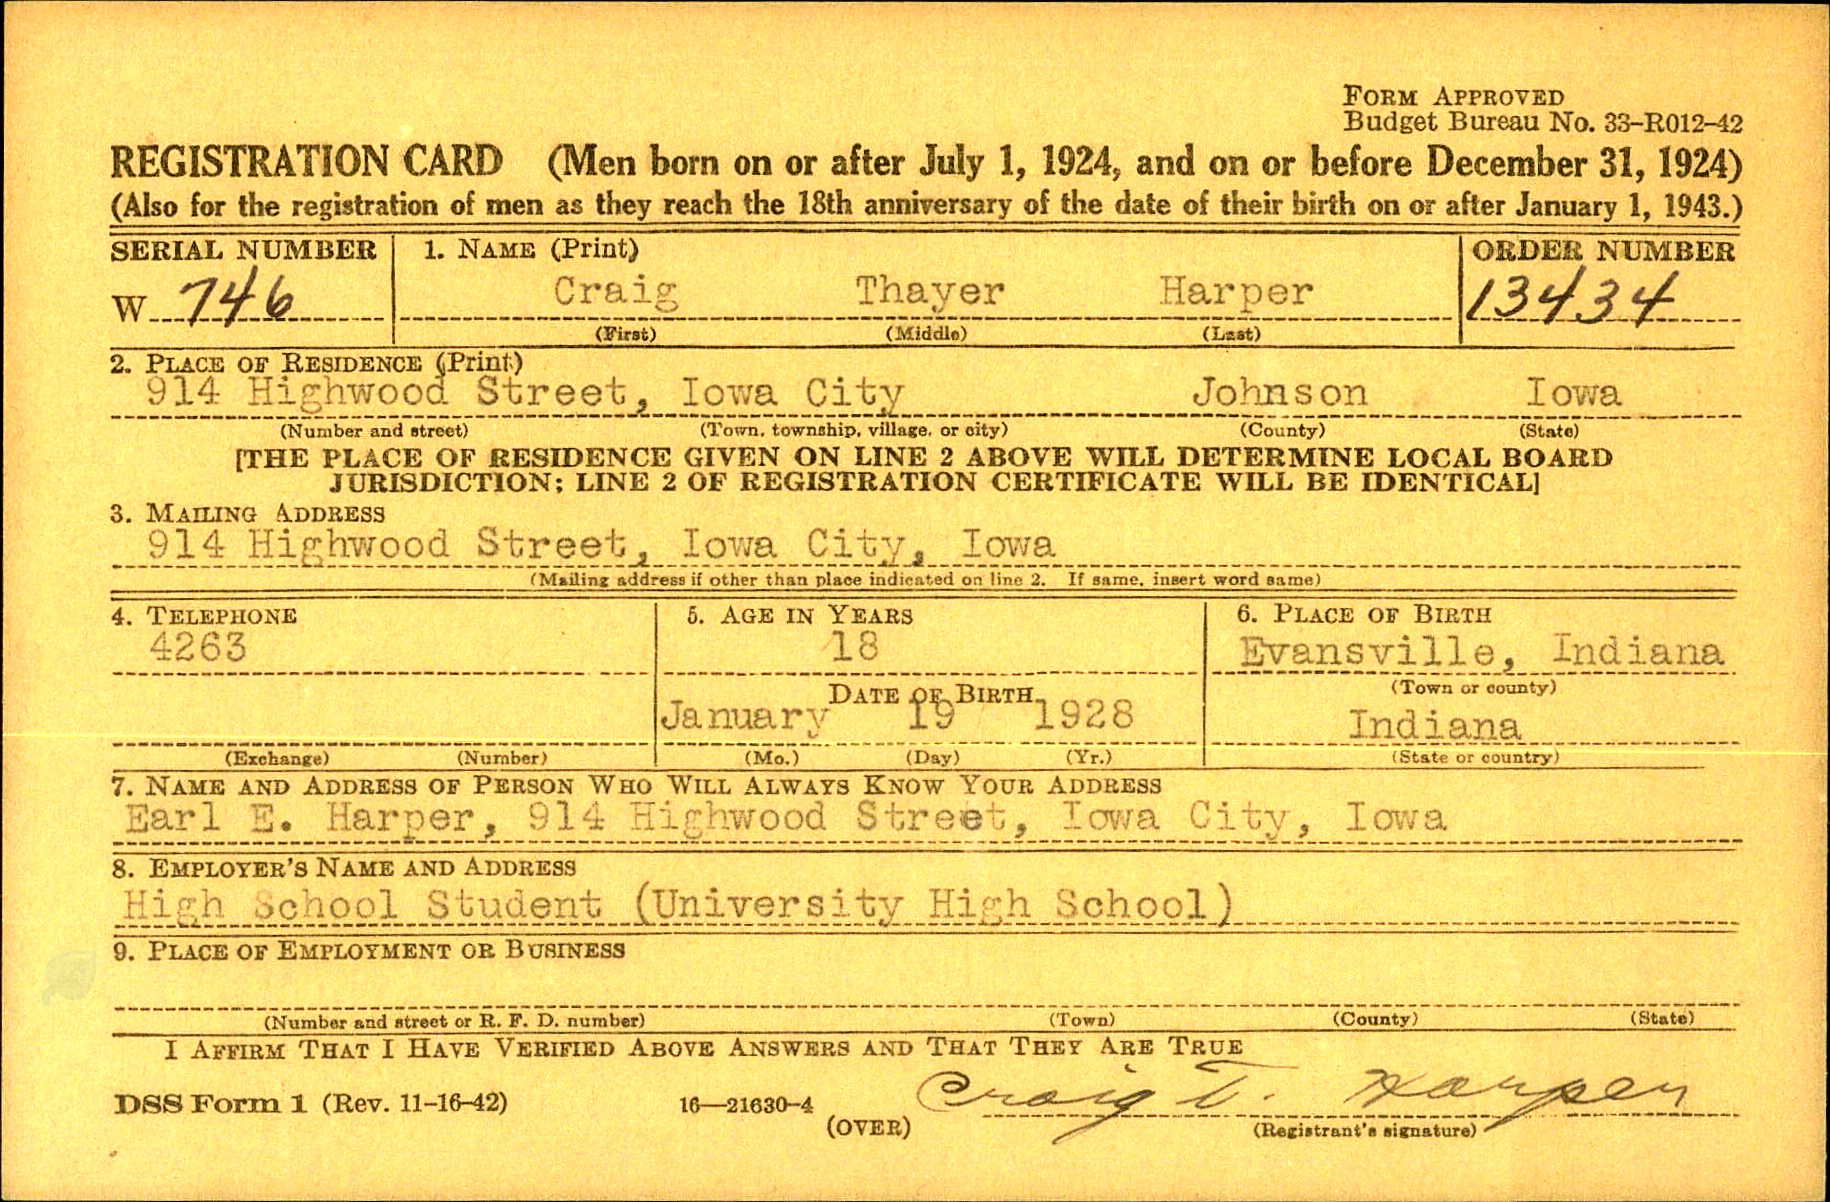 FORM APPROVED
Budget Bureau No. 33-R012-42
REGISTRATION CARD (Men born on or after July 1, 1924, and on or before December 31, 1924)
(Also for the registration of men as they reach the 18th anniversary of the date of their birth on or after January 1, 1943.)
SERIAL NUMBER 1. NAME (Print) ORDER NUMBER
W 746 Craig Thayer Harper 13434
(First) (Middle) (Last)
2. PLACE OF RESIDENCE (Print)
914 Highwood Street, Iowa City Johnson Iowa
(Number and street) (Town, township, village, or city) (County) (State)
[THE PLACE OF RESIDENCE GIVEN ON LINE 2 ABOVE WILL DETERMINE LOCAL BOARD
JURISDICTION; LINE 2 OF REGISTRATION CERTIFICATE WILL BE IDENTICAL]
3. MAILING ADDRESS
914 Highwood Street, Iowa City, Iowa
(Mailing address if other than place indicated on line 2. If same, insert word same)
4. TELEPHONE 5. AGE IN YEARS 6. PLACE OF BIRTH
4263 18 Evansville, Indiana
DATE OF BIRTH (Town or county)
January 19 1928 Indiana
(Exchange) (Number) (Mo.) (Day) (Yr.) (State or country)
7. NAME AND ADDRESS OF PERSON WHO WILL ALWAYS KNOW YOUR ADDRESS
Earl E. Harper, 914 Highwood Street, Iowa City, Iowa
8. EMPLOYER'S NAME AND ADDRESS
High School Student (University High School)
9. PLACE OF EMPLOYMENT OR BUSINESS
(Number and street or R. F. D. number) (Town) (County) (State)
I AFFIRM THAT I HAVE VERIFIED ABOVE ANSWERS AND THAT THEY ARE TRUE
DSS Form 1 (Rev. 11-16-42) 16—21630-4 Craig T. Harper
(OVER) (Registrant's signature)